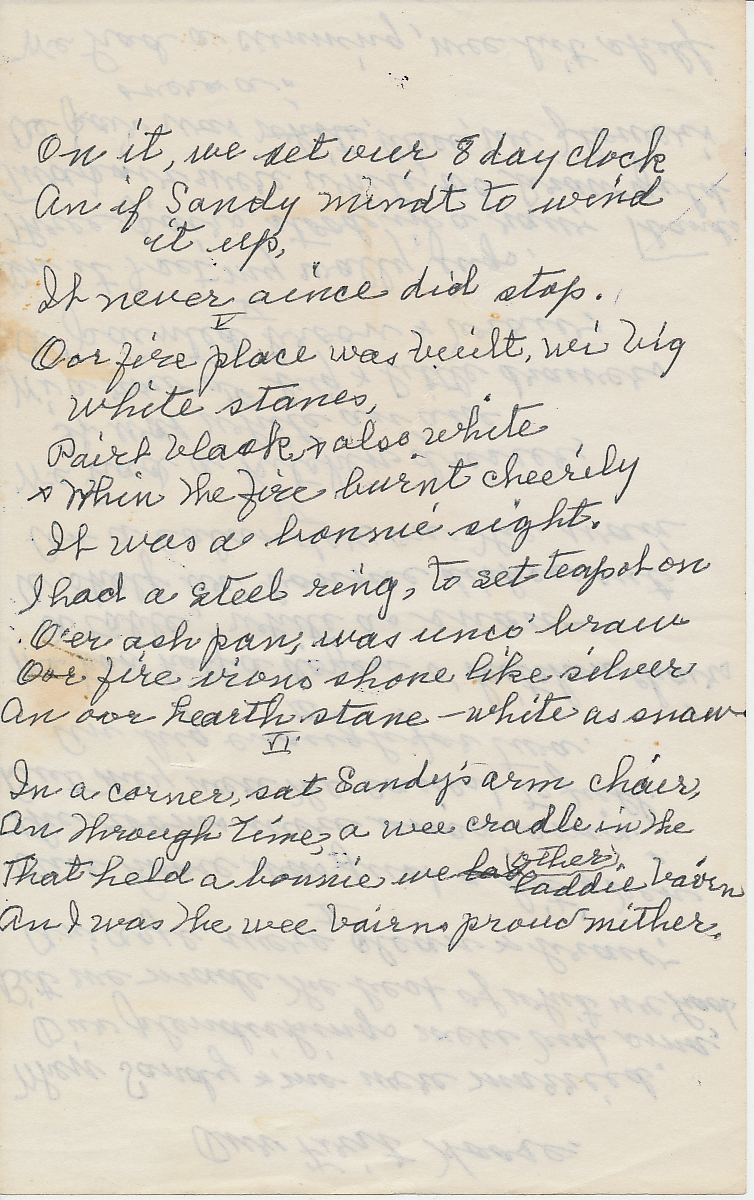 On it, we set our 8 day clock
An if Sandy mindt to wind
it up,
It never aince did stop.
V
Oor fire place was built, wi big
white stanes,
Pairt black, & also white
& Whin the fire burnt cheerily
It was a bonnie sight.
I had a steel ring, to set teapot on
O'er ash pan, was unco braw
Oor fire irons shone like silver
An oor hearth stane - white as snaw
VI
In a corner, sat Sandy's arm chair,
An through time, a wee cradle in the
other,
That held a bonnie we laddie bairn
And I was the wee bairns proud mither.